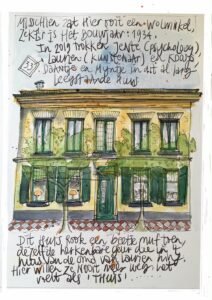 Misschien zat hier ooit een wolwinkel,
zeker is het bouwjaar: 1934.
In 2019 trokken Jente (psycholoog),
Laurien (kunstenaar) en Koos
Daantje en Mijntje in dit al jaren
leegstaande huis
Dit huis rook een beetje muf toen
dezelfde herkenbare geur die in 't
huis van de oma van Laurien hing.
Hier willen ze nooit meer weg. Het
voelt als 'THUIS'.